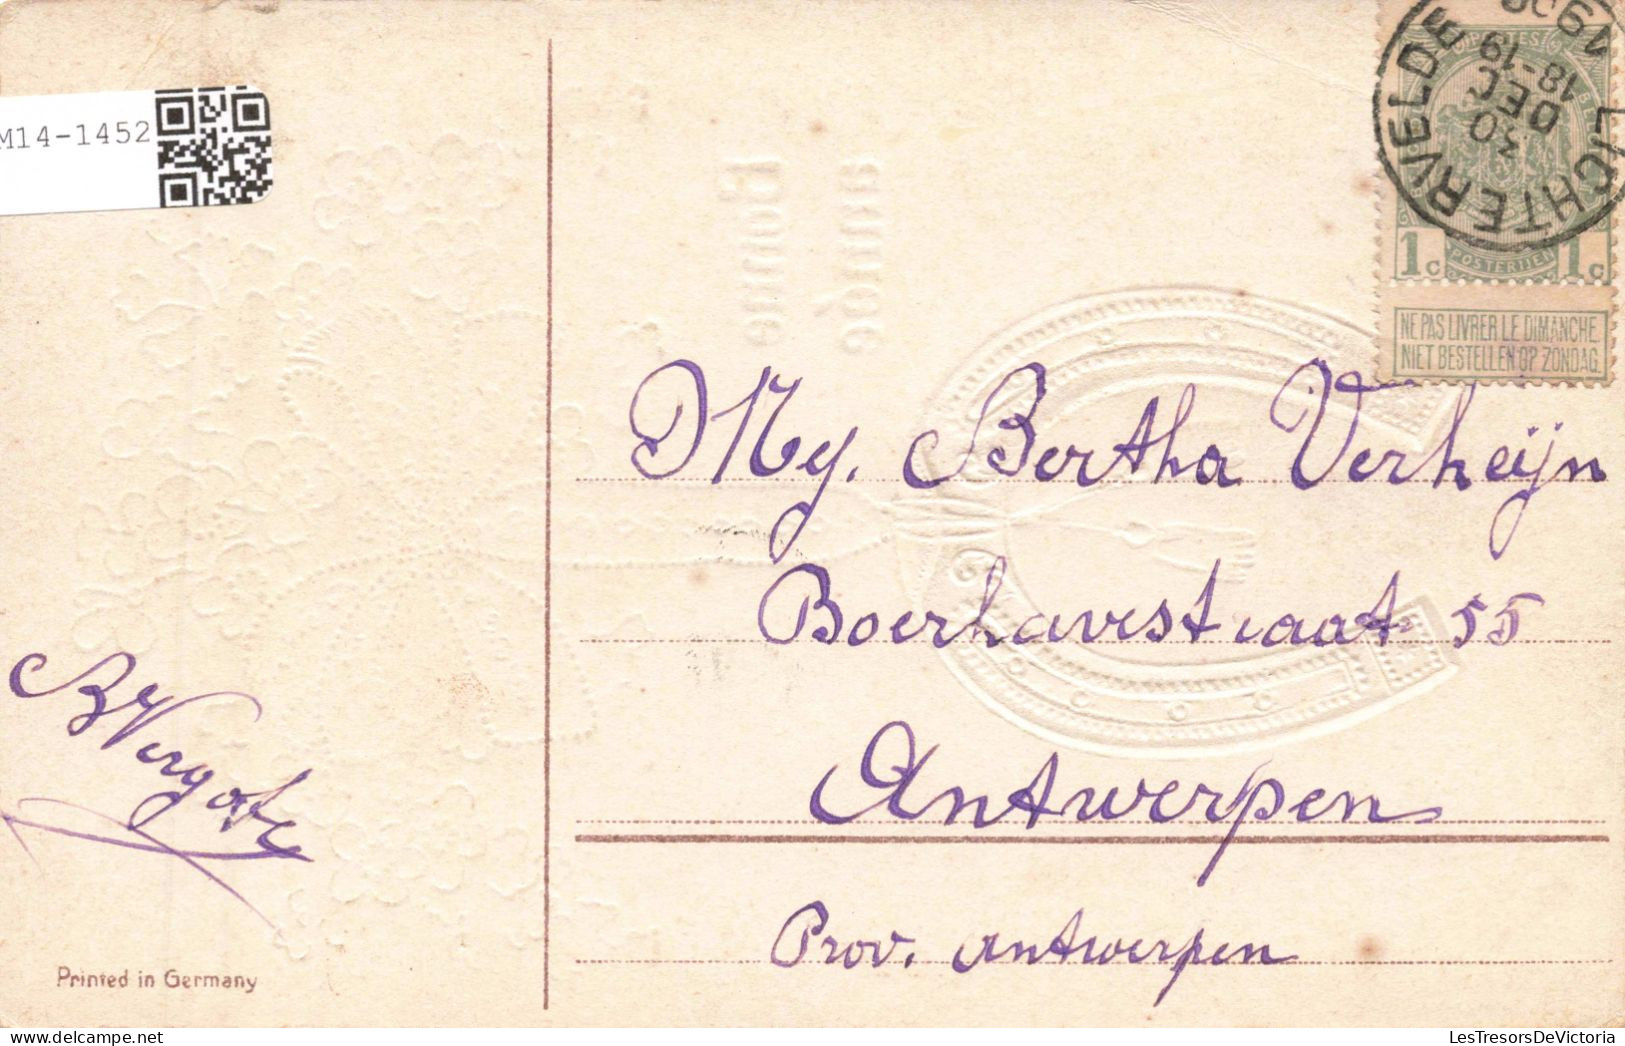 M14-1452
LICHTERVELDE
30
DEC
18-19
POSTERIJEN
1c 1c
NE PAS LIVRER LE DIMANCHE
NIET BESTELLEN OP ZONDAG.
Bonne
année
My. Bertha Verheijn
Boerhavestraat 55
Antwerpen
Prov. Antwerpen
Printed in Germany
LesTresorsDeVictoria.com